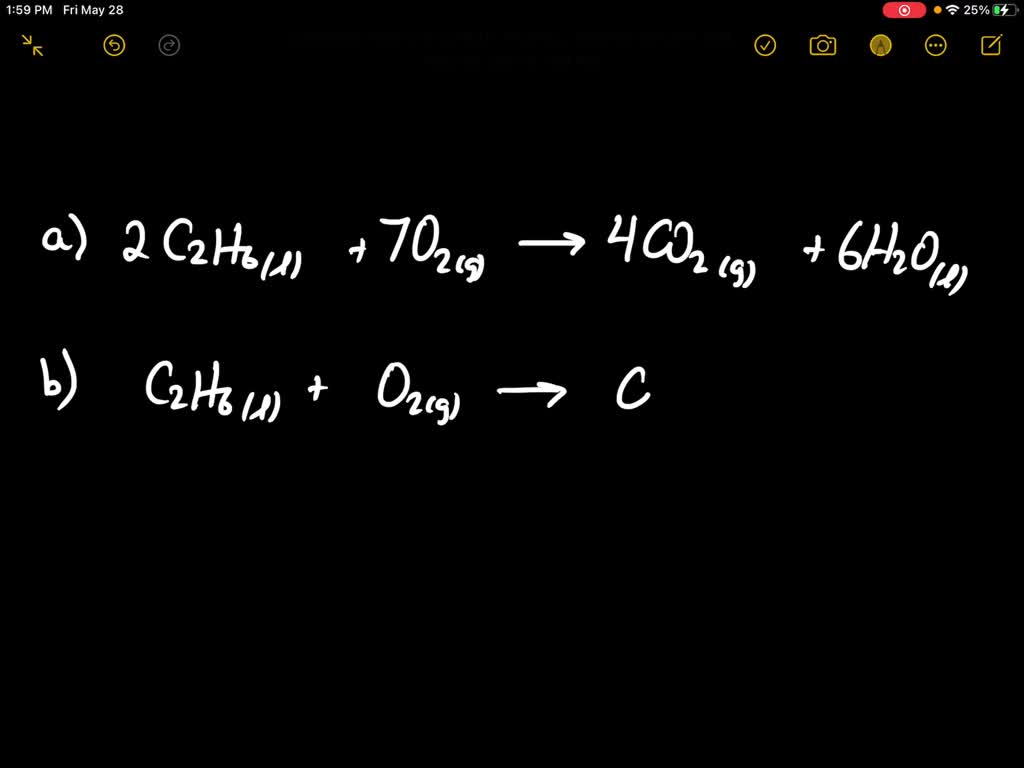 1:59 PM Fri May 28 25%
a) 2C₂H₆(l) + 7O₂(g) → 4CO₂(g) + 6H₂O(l)
b) C₂H₆(l) + O₂(g) → C